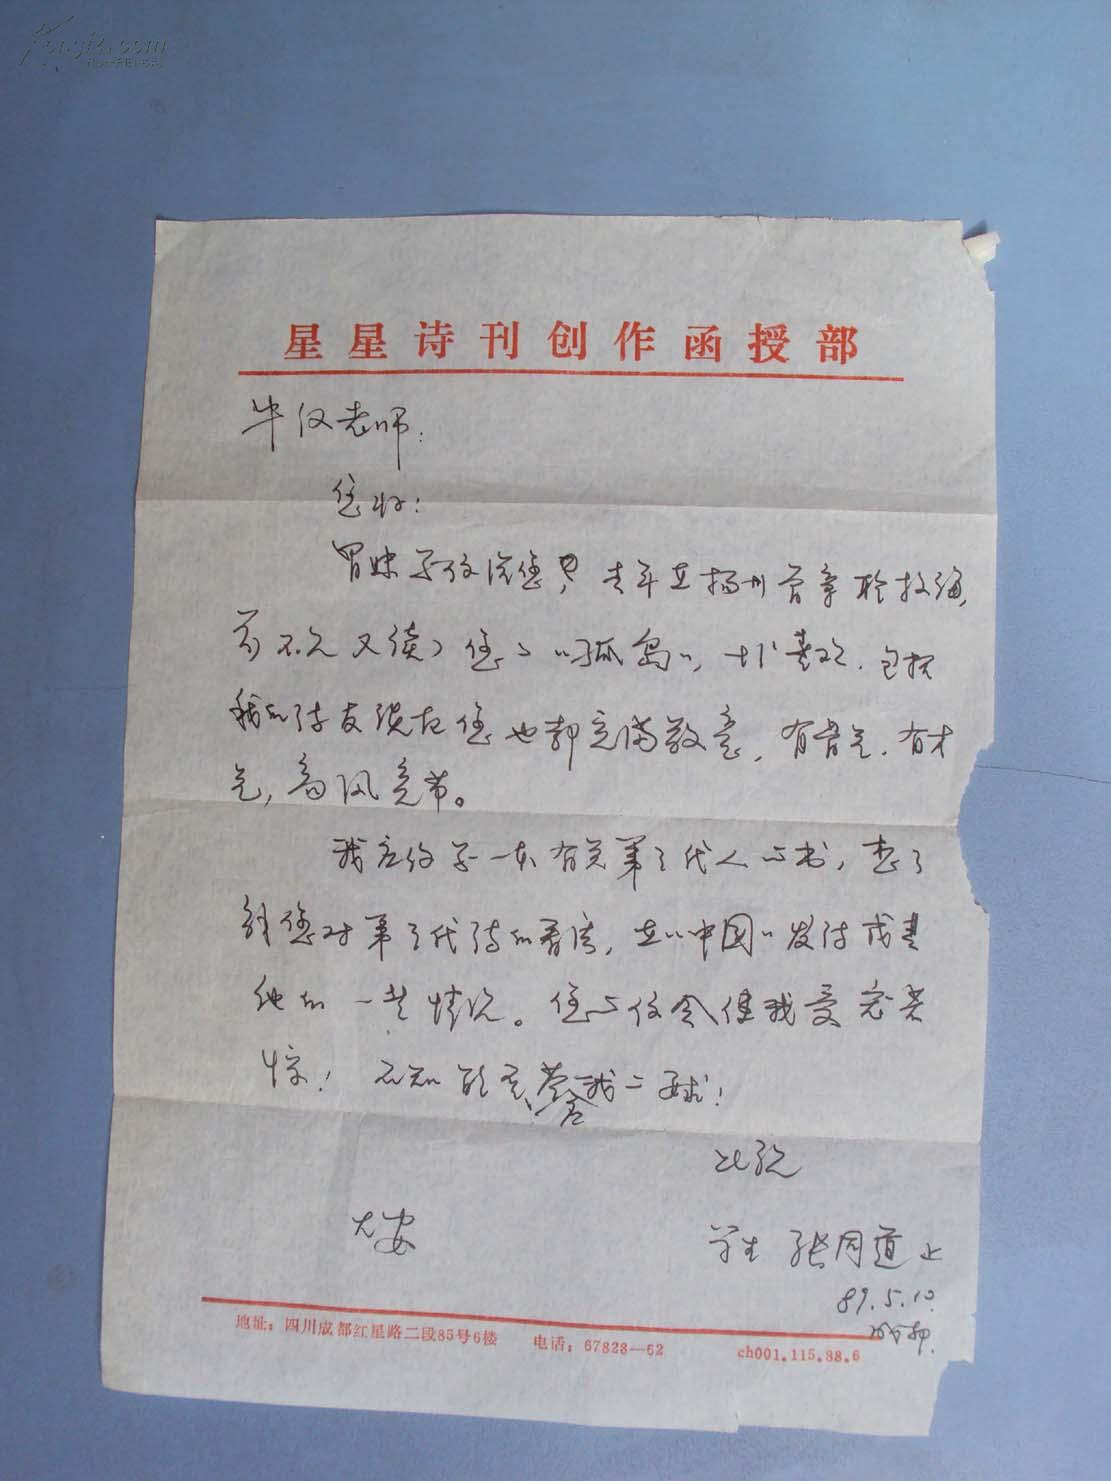 Kongfz.com
星星诗刊创作函授部
牛汉老师：
您好：
冒昧写信给您，去年在扬州曾幸聆教诲，
前不久又读了您的“孤岛”，十分喜欢。包括
我的诗友谈起您也都充满敬意，有骨气，有才
气，高风亮节。
我应约写一本有关第三代人的书，想了
解您对第三代诗的看法，在“中国”发诗或其
他的一些情况。您的信会使我受宠若
惊！不知能否答我一二
此祝
大安
学生 张同道 上
89.5.10.
地址：四川成都红星路二段85号6楼 电话：67828—62 ch001.115.88.6